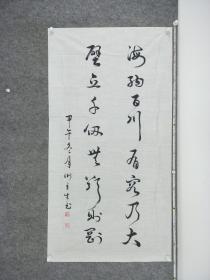 海纳百川有容乃大
壁立千仞無欲则刚
甲午冬月